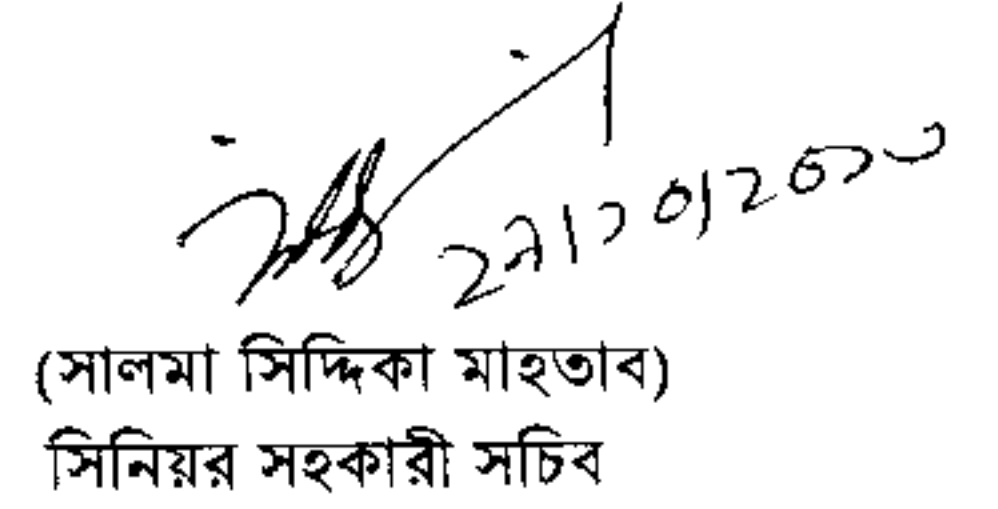 ২৭/১০/২০১০
(সালমা সিদ্দিকা মাহতাব)
সিনিয়র সহকারী সচিব